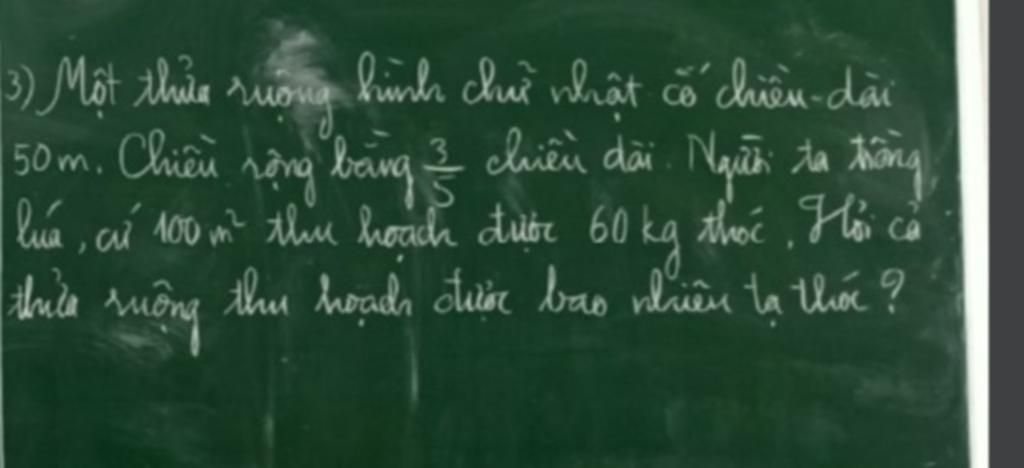 3) Một thửa ruộng hình chữ nhật có chiều dài
50m. Chiều rộng bằng 3/5 chiều dài. Người ta trồng
lúa, cứ 100m² thu hoạch được 60kg thóc. Hỏi cả
thửa ruộng thu hoạch được bao nhiêu tạ thóc?